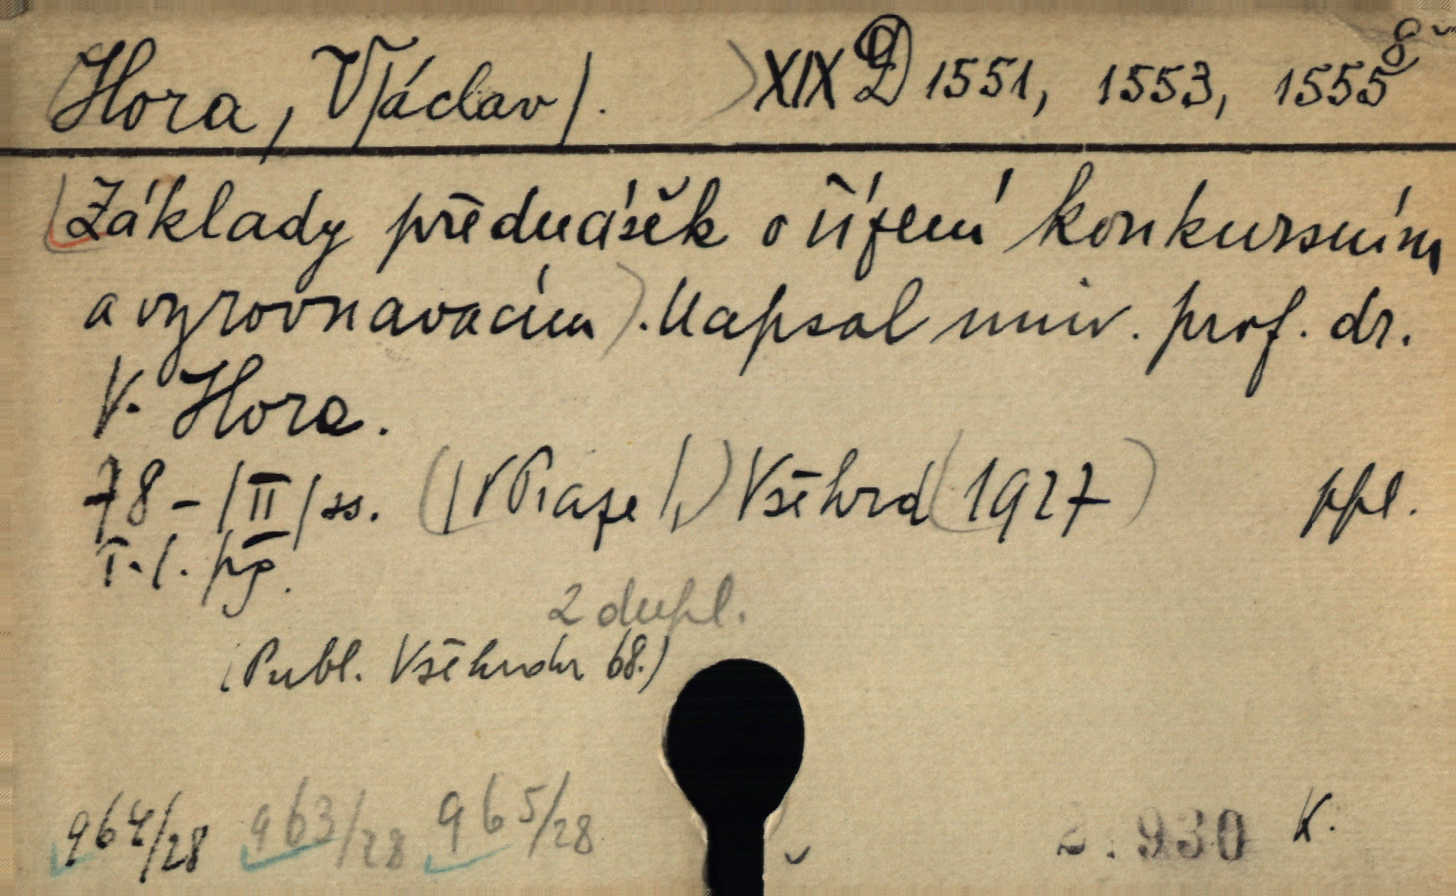 Hora, V/áclav/. XIX D 1551, 1553, 1555
8°
Základy přednášek o řízení konkursním
a vyrovnavacím). Napsal univ. prof. dr.
V. Hora.
78 - /II/ ss. (/V Praze/,) Všehrd (1927) ppl.
T.l. pg.
2 dupl.
(Publ. Všehrdu 68.)
964/28 963/28 965/28 2.930 K.